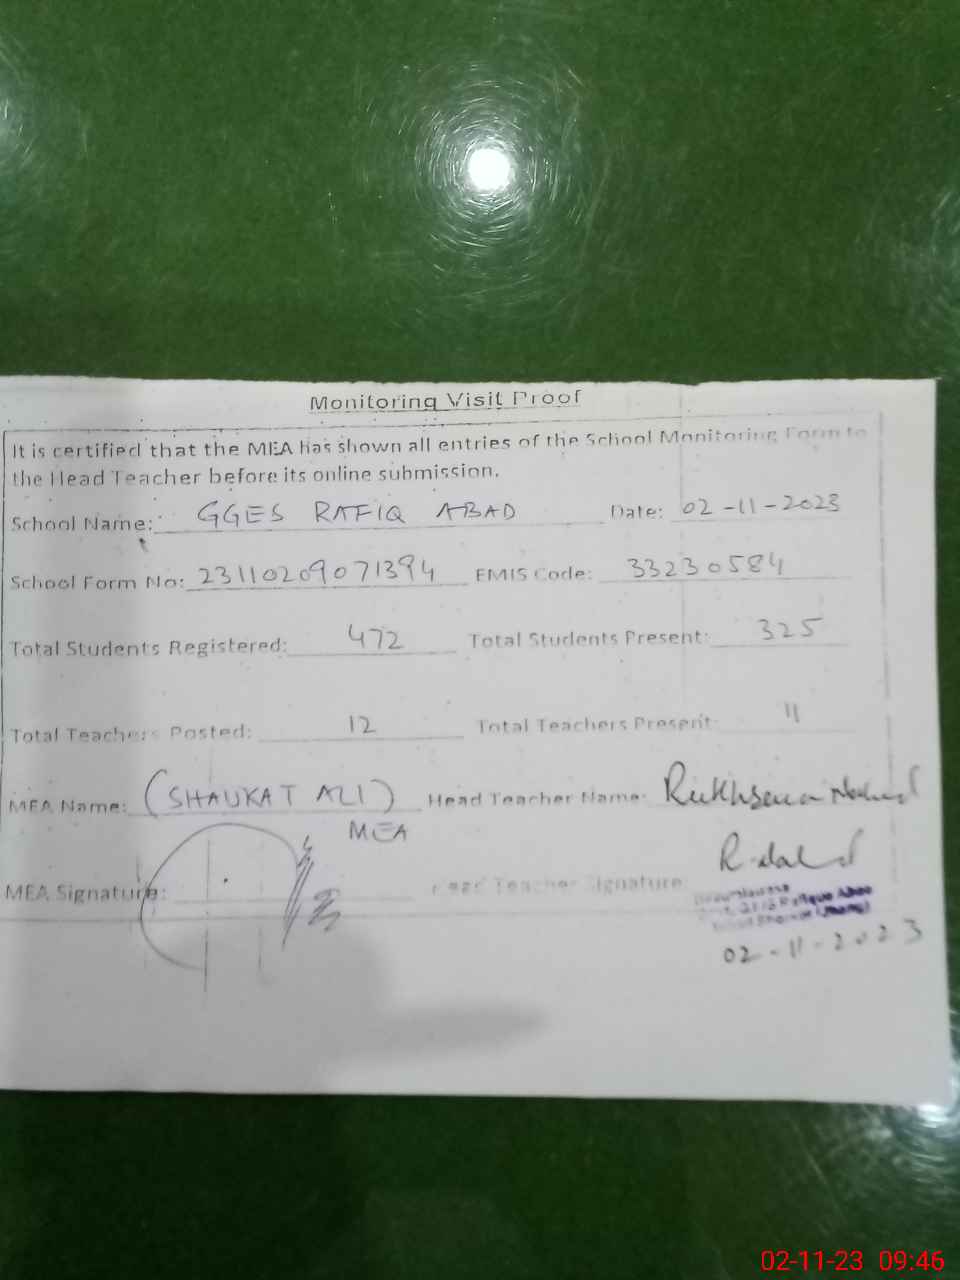 Monitoring Visit Proof
It is certified that the MEA has shown all entries of the School Monitoring Form to
the Head Teacher before its online submission.
School Name: GGES RAFIQ ABAD Date: 02-11-2023
School Form No: 23110209071394 EMIS Code: 33230584
Total Students Registered: 472 Total Students Present: 325
Total Teachers Posted: 12 Total Teachers Present: 11
MEA Name: (SHAUKAT ALI) Head Teacher Name: Rukhsana
MEA
MEA Signature: Head Teacher Signature:
Rafique Abad
02-11-2023
02-11-23 09:46